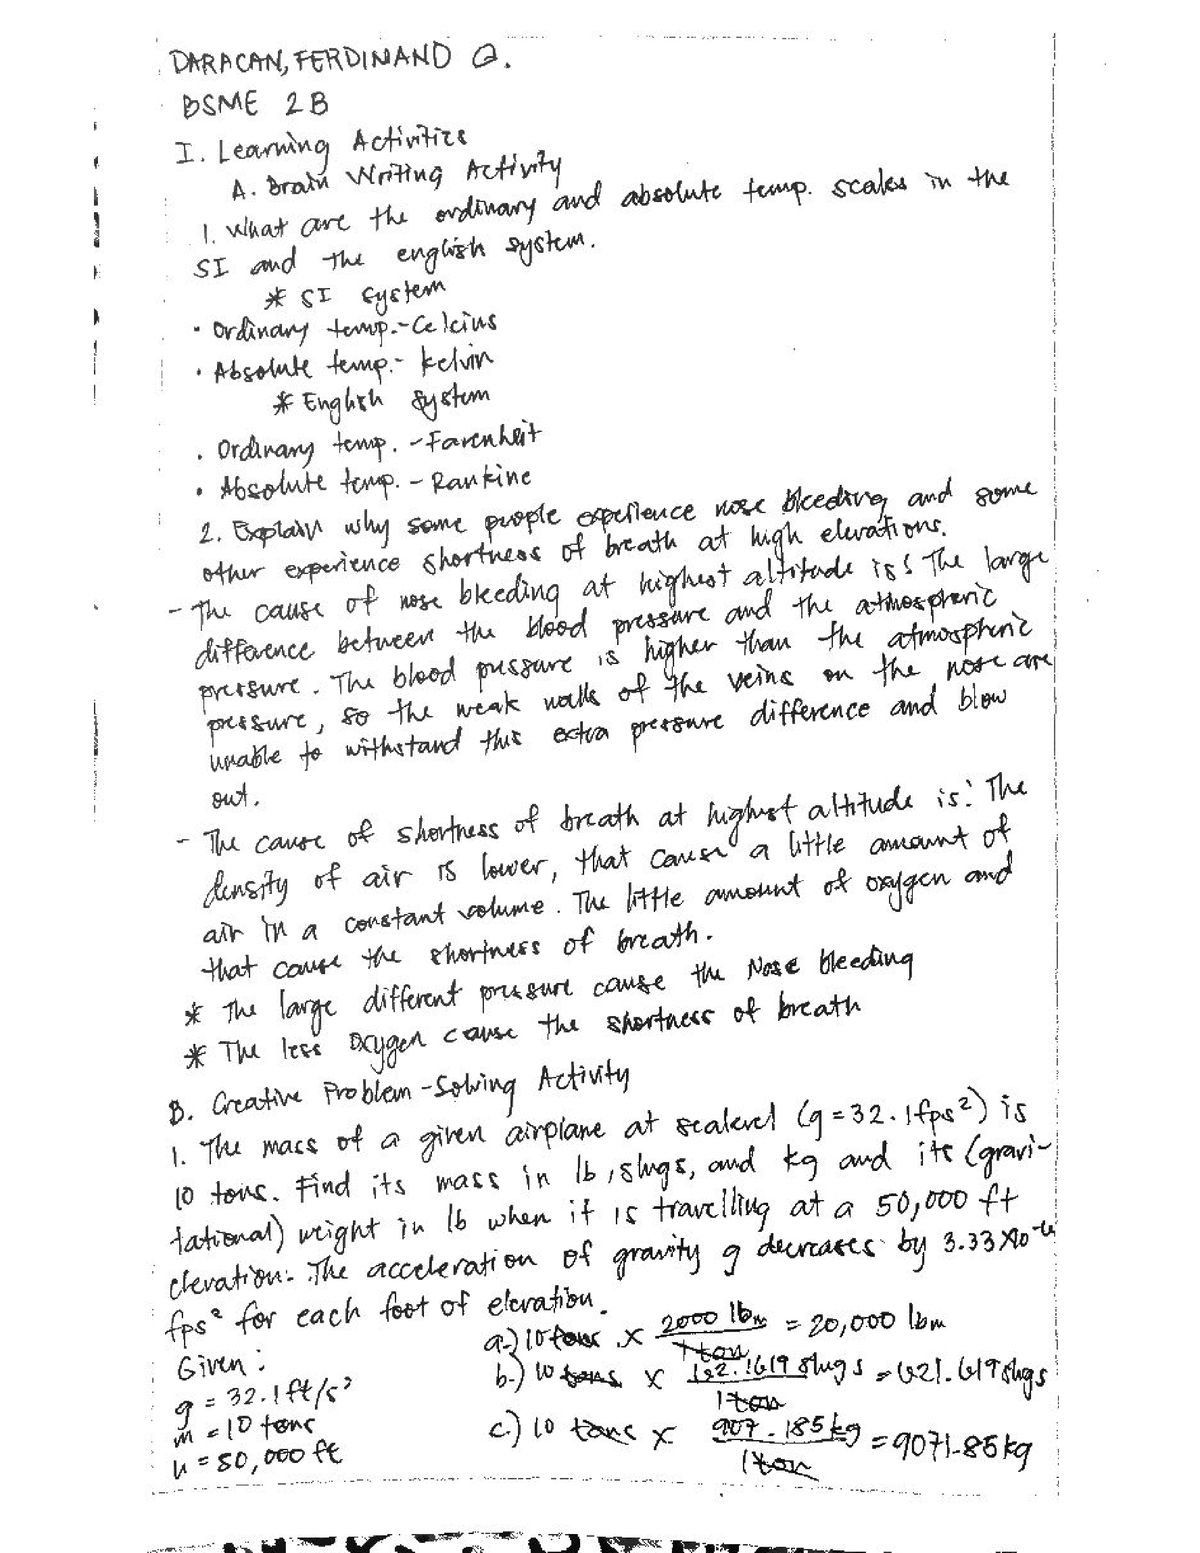 DARACAN, FERDINAND Q.
BSME 2B
I. Learning Activities
A. Brain Writing Activity
1. What are the ordinary and absolute temp. scales in the
SI and the english system.
* SI system
• Ordinary temp.-Celcius
• Absolute temp.- kelvin
* English system
• Ordinary temp. -Farenheit
• Absolute temp. - Rankine
2. Explain why some people experience nose bleeding and some
other experience shortness of breath at high elevations.
- The cause of nose bleeding at highest altitude is: The large
difference between the blood pressure and the athospheric
pressure. The blood pressure is higher than the atmospheric
pressure, so the weak walls of the veins on the nose are
unable to withstand this extra pressure difference and blow
out.
- The cause of shortness of breath at highest altitude is: The
density of air is lower, that cause a little amount of
air in a constant volume. The little amount of oxygen and
that cause the shortness of breath.
* The large different pressure cause the Nose bleeding
* The less oxygen cause the shortness of breath
B. Creative Problem-Solving Activity
1. The mass of a given airplane at sealevel (g=32.1fps²) is
10 tons. Find its mass in lb, slugs, and kg and its (gravi-
tational) weight in lb when it is travelling at a 50,000 ft
elevation. The acceleration of gravity g decreases by 3.33x10⁻⁶
fps² for each foot of elevation.
Given:
g = 32.1ft/s²
m = 10 tons
h = 50,000 ft
a.) 10 tons x 2000 lbm / 1 ton = 20,000 lbm
b.) 10 tons x 62.1619 slugs / 1 ton = 621.619 slugs
c.) 10 tons x 907.185kg / 1 ton = 9071.85kg